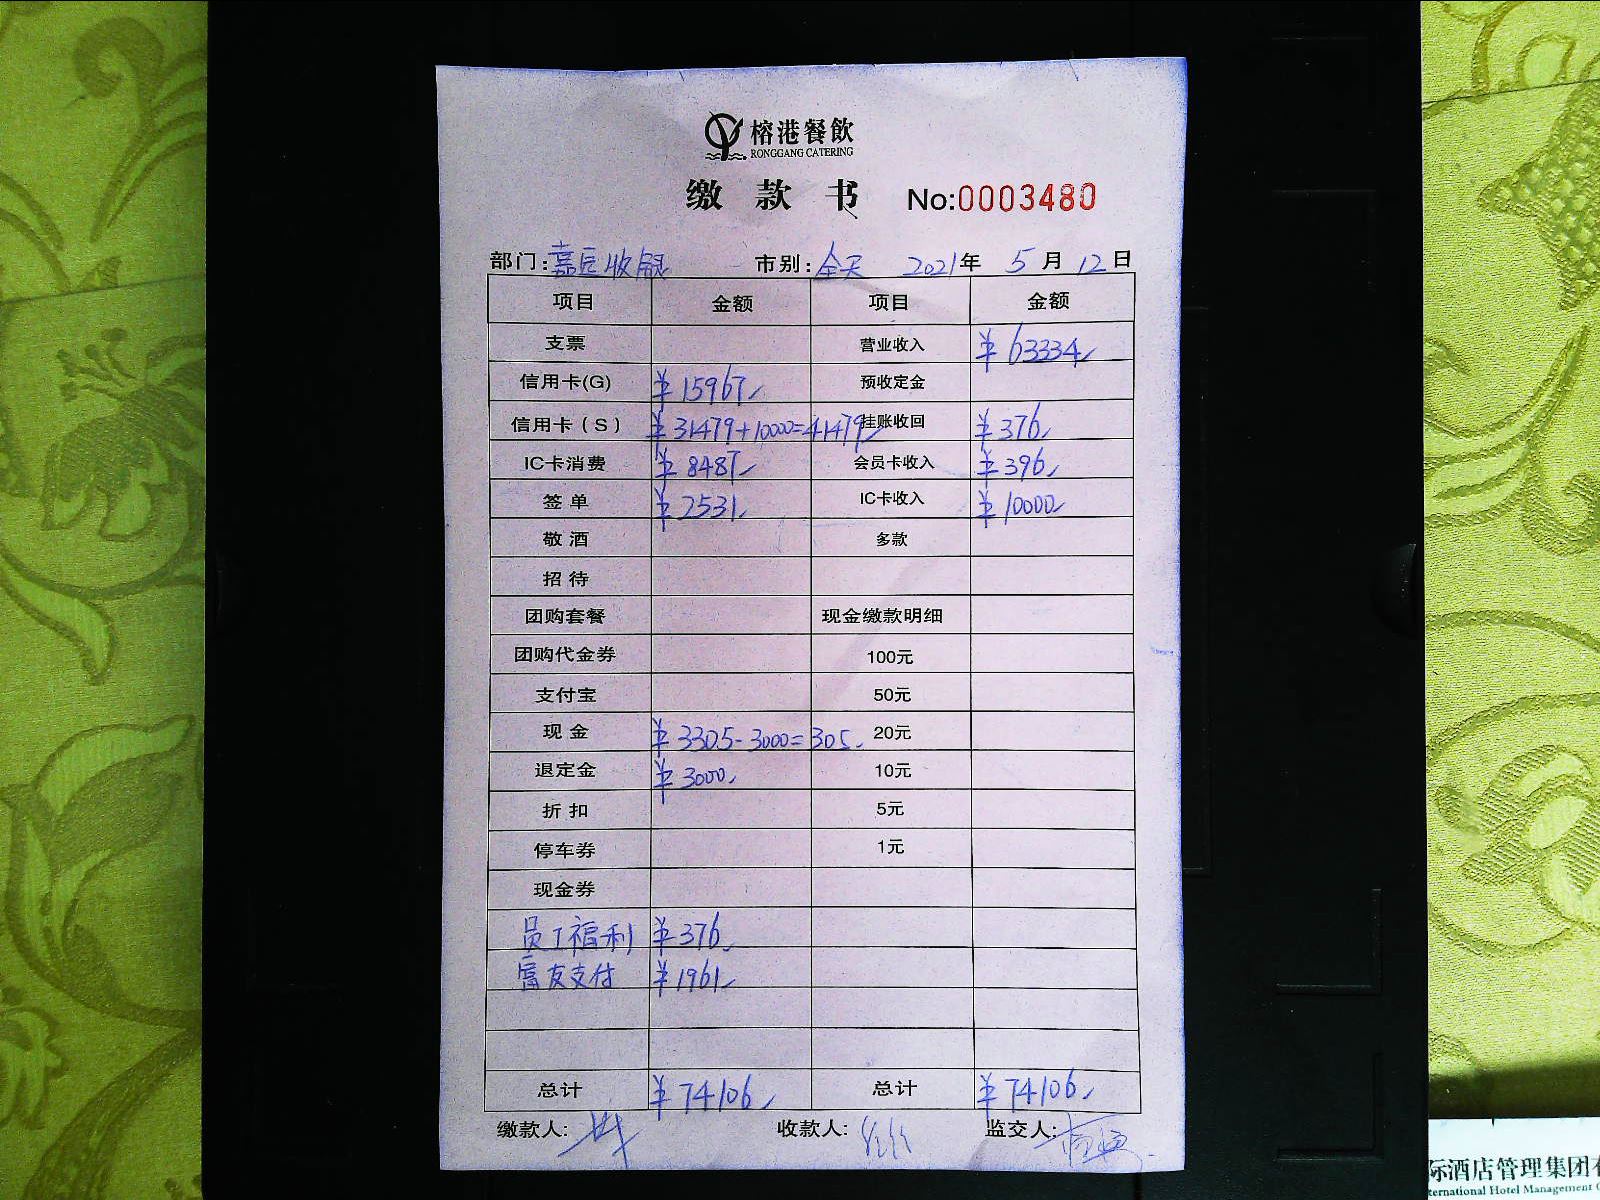 榕港餐飲
RONGGANG CATERING
缴款书 No:0003480
部门:嘉园收银 市别:全天 2021年 5月 12日
项目 金额 项目 金额
支票 营业收入 ¥63334
信用卡(G) ¥15967 预收定金
信用卡(S) ¥31479+10000=41479 挂账收回 ¥376
IC卡消费 ¥8487 会员卡收入 ¥396
签单 ¥2531 IC卡收入 ¥10000
敬酒 多款
招待
团购套餐 现金缴款明细
团购代金券 100元
支付宝 50元
现金 ¥3305-3000=305 20元
退定金 ¥3000 10元
折扣 5元
停车券 1元
现金券
员工福利 ¥376
富友支付 ¥1961
总计 ¥74106 总计 ¥74106
缴款人: 收款人: 监交人:
际酒店管理集团有
ternational Hotel Management